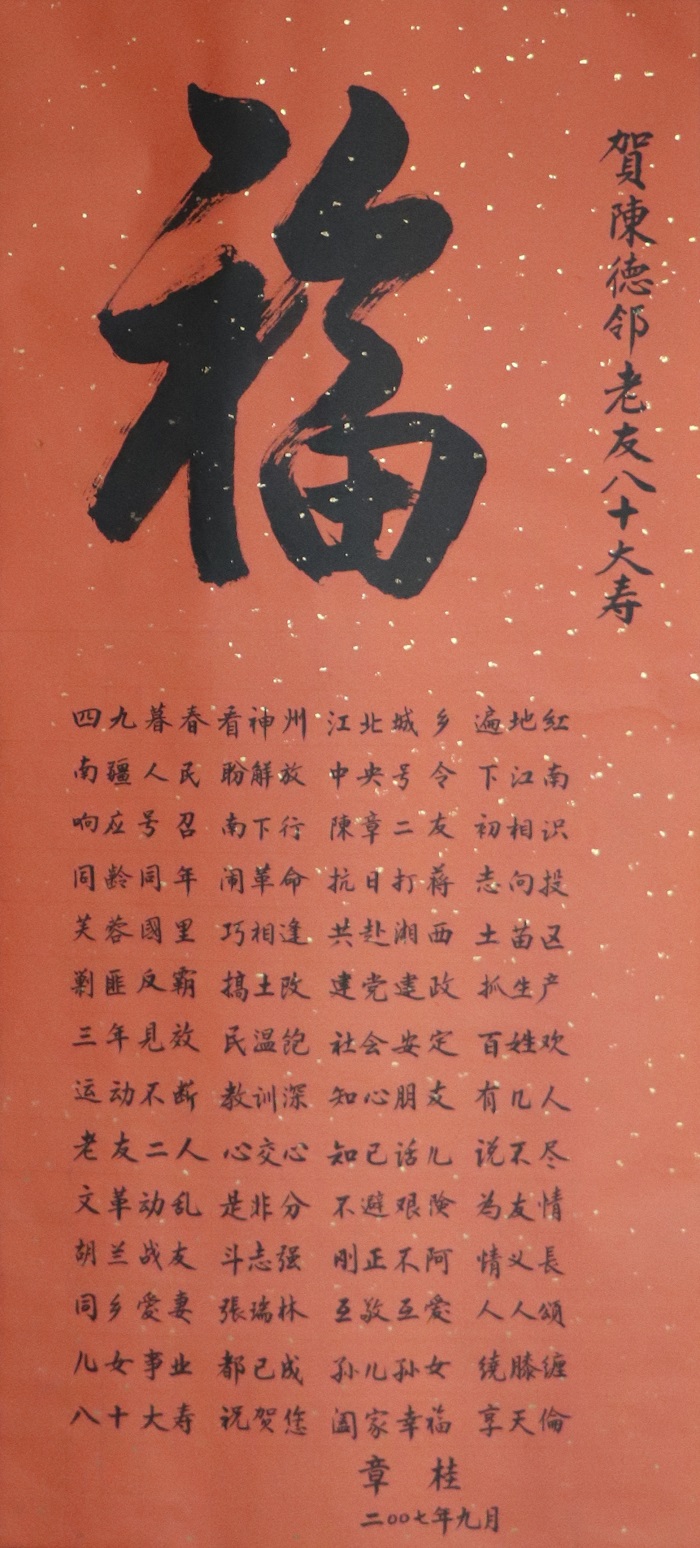 福
賀陳德邻老友八十大寿
四九暮春 看神州 江北城乡 遍地红
南疆人民 盼解放 中央号令 下江南
响应号召 南下行 陳章二友 初相识
同龄同年 闹革命 抗日打蒋 志向投
芙蓉國里 巧相逢 共赴湘西 土苗区
剿匪反霸 搞土改 建党建政 抓生产
三年见效 民温饱 社会安定 百姓欢
运动不断 教训深 知心朋友 有几人
老友二人 心交心 知已话儿 说不尽
文革动乱 是非分 不避艰险 为友情
胡兰战友 斗志强 刚正不阿 情义長
同乡爱妻 張瑞林 互敬互爱 人人颂
儿女事业 都已成 孙儿孙女 绕膝缠
八十大寿 祝贺您 阖家幸福 享天倫
章桂
二00七年九月